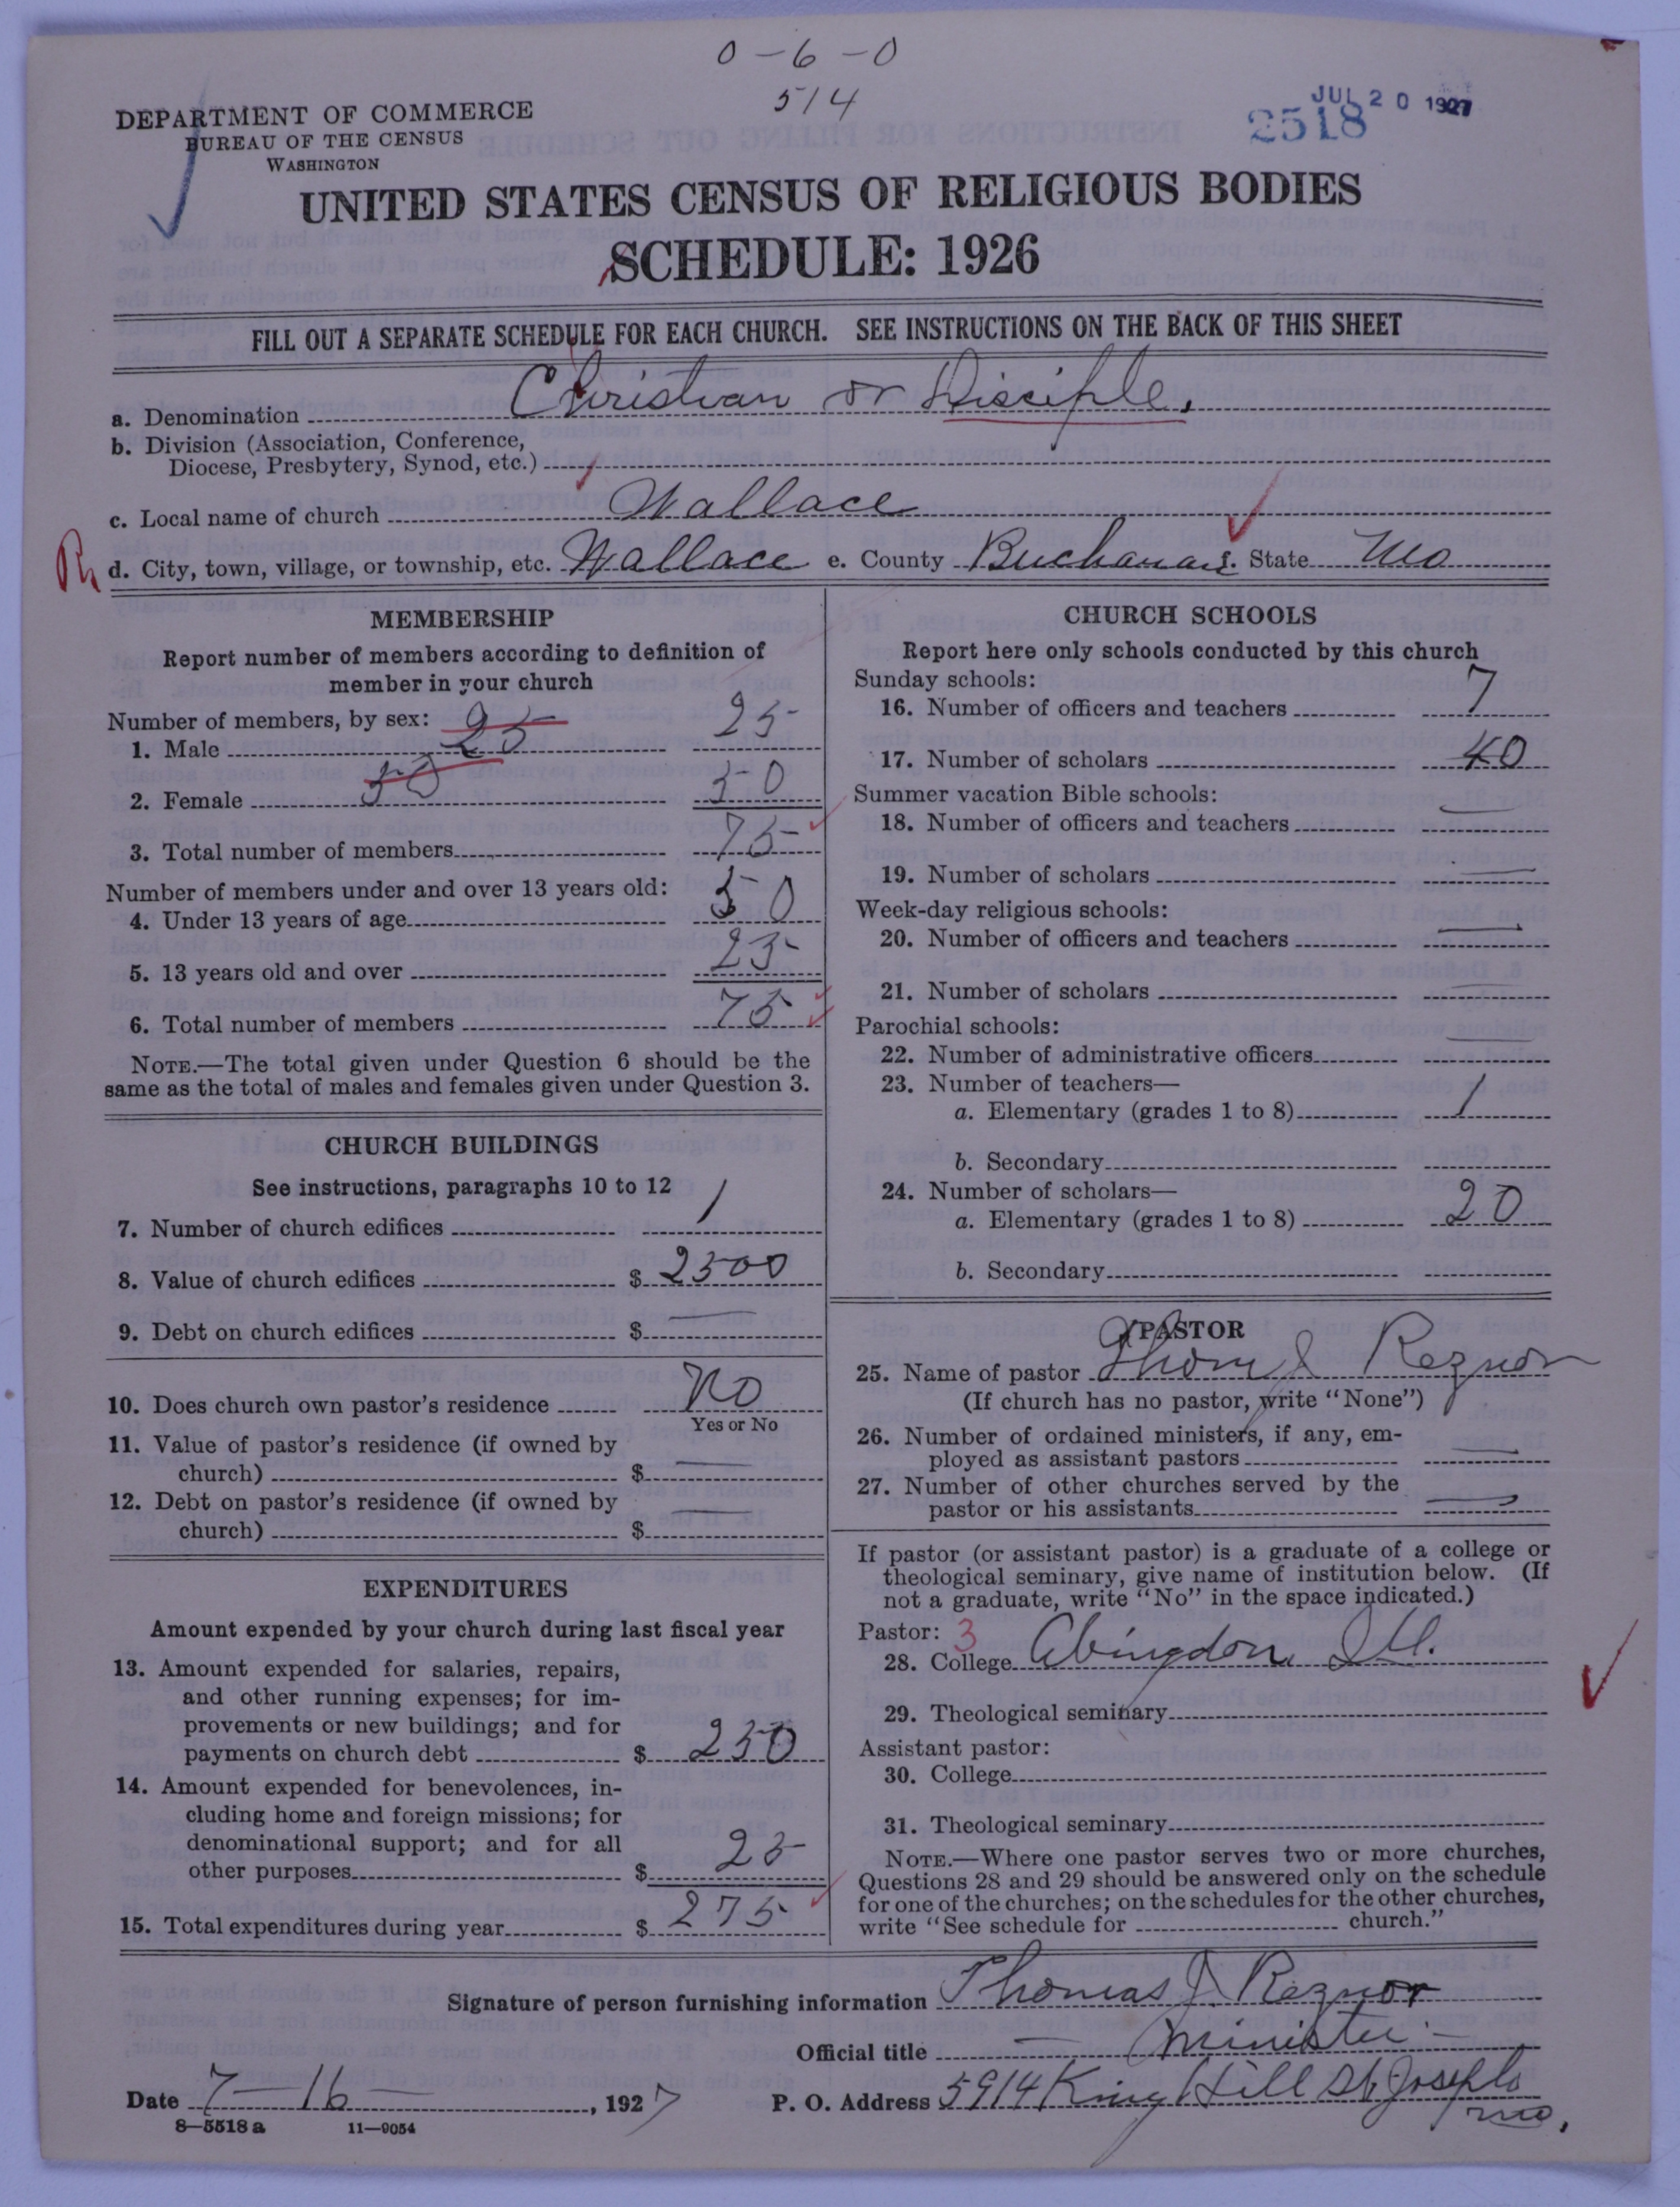 0-6-0
514
DEPARTMENT OF COMMERCE
BUREAU OF THE CENSUS
WASHINGTON
JUL 20 1927
2518
UNITED STATES CENSUS OF RELIGIOUS BODIES
SCHEDULE: 1926
FILL OUT A SEPARATE SCHEDULE FOR EACH CHURCH. SEE INSTRUCTIONS ON THE BACK OF THIS SHEET
a. Denomination Christian or Disciple.
b. Division (Association, Conference,
Diocese, Presbytery, Synod, etc.)
c. Local name of church Wallace
d. City, town, village, or township, etc. Wallace e. County Buchanan f. State Mo
MEMBERSHIP
Report number of members according to definition of
member in your church
Number of members, by sex: 25
1. Male 25
2. Female 50 50
3. Total number of members 75
Number of members under and over 13 years old:
4. Under 13 years of age 50
5. 13 years old and over 25
6. Total number of members 75
NOTE.—The total given under Question 6 should be the
same as the total of males and females given under Question 3.
CHURCH BUILDINGS
See instructions, paragraphs 10 to 12
7. Number of church edifices 1
8. Value of church edifices $ 2500
9. Debt on church edifices $ —
10. Does church own pastor's residence No
Yes or No
11. Value of pastor's residence (if owned by
church) $ —
12. Debt on pastor's residence (if owned by
church) $ —
EXPENDITURES
Amount expended by your church during last fiscal year
13. Amount expended for salaries, repairs,
and other running expenses; for im-
provements or new buildings; and for
payments on church debt $ 250
14. Amount expended for benevolences, in-
cluding home and foreign missions; for
denominational support; and for all
other purposes $ 25
15. Total expenditures during year $ 275
CHURCH SCHOOLS
Report here only schools conducted by this church
Sunday schools:
16. Number of officers and teachers 7
17. Number of scholars 40
Summer vacation Bible schools:
18. Number of officers and teachers —
19. Number of scholars —
Week-day religious schools:
20. Number of officers and teachers —
21. Number of scholars —
Parochial schools:
22. Number of administrative officers —
23. Number of teachers—
a. Elementary (grades 1 to 8) 1
b. Secondary
24. Number of scholars—
a. Elementary (grades 1 to 8) 20
b. Secondary
PASTOR
25. Name of pastor Thom J Reznor
(If church has no pastor, write "None")
26. Number of ordained ministers, if any, em-
ployed as assistant pastors —
27. Number of other churches served by the
pastor or his assistants —
If pastor (or assistant pastor) is a graduate of a college or
theological seminary, give name of institution below. (If
not a graduate, write "No" in the space indicated.)
Pastor: 3
28. College Abingdon, Ill.
29. Theological seminary
Assistant pastor:
30. College
31. Theological seminary
NOTE.—Where one pastor serves two or more churches,
Questions 28 and 29 should be answered only on the schedule
for one of the churches; on the schedules for the other churches,
write "See schedule for church."
Signature of person furnishing information Thomas J. Reznor
Official title — Minister —
Date 7-16-, 1927 P. O. Address 5914 King Hill St Joseph
Mo.
8—5518a 11—9054